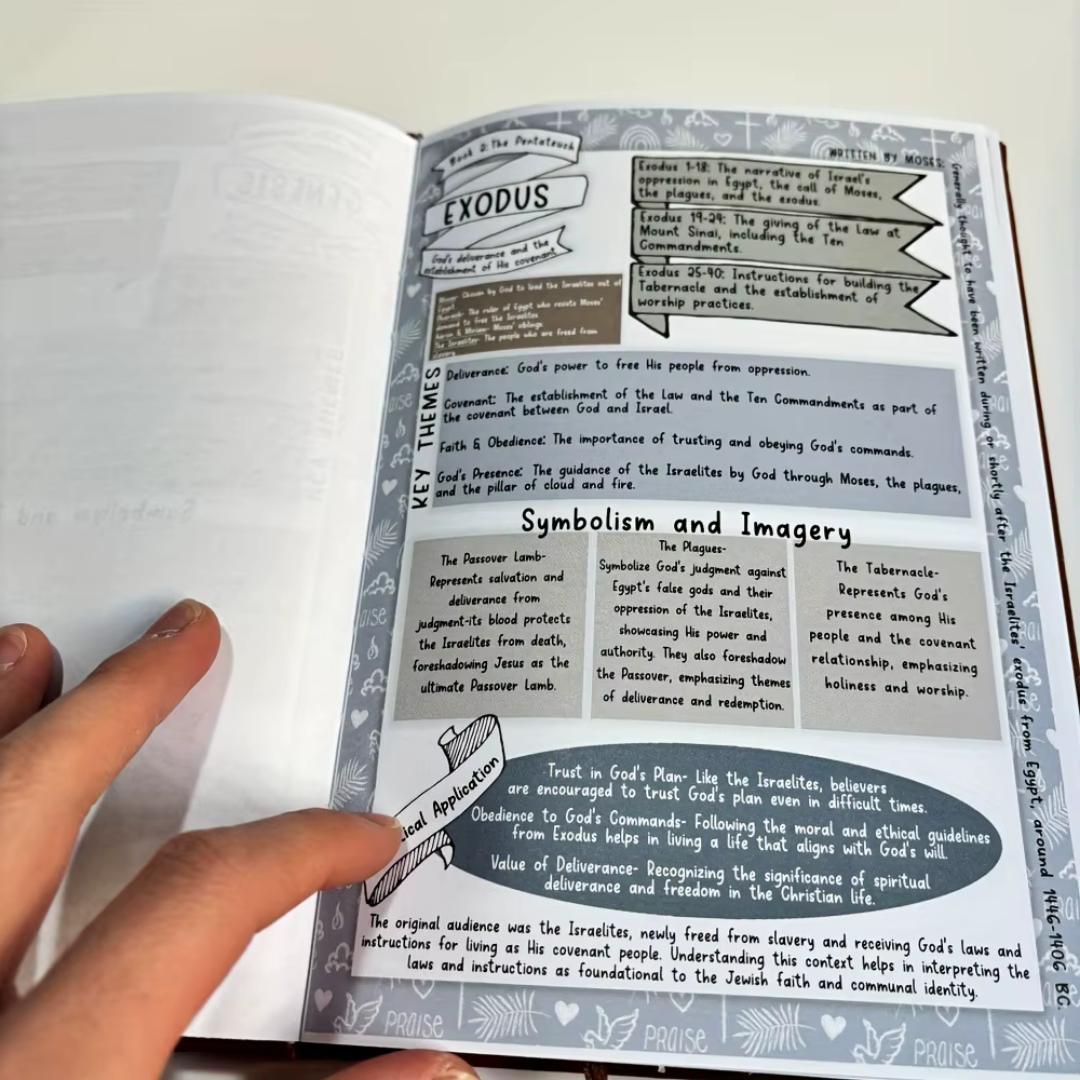 Book 2: The Pentateuch
EXODUS
God's deliverance and the
establishment of His covenant
WRITTEN BY MOSES:
Generally thought to have been written during or shortly after the Israelites' exodus from Egypt, around 1446-1406 BC.
Exodus 1-18: The narrative of Israel's
oppression in Egypt, the call of Moses,
the plagues, and the exodus.
Exodus 19-24: The giving of the Law at
Mount Sinai, including the Ten
Commandments.
Exodus 25-40: Instructions for building the
Tabernacle and the establishment of
worship practices.
Moses- Chosen by God to lead the Israelites out of
Egypt.
Pharaoh- The ruler of Egypt who resists Moses'
demand to free the Israelites
Aaron & Miriam- Moses' siblings
The Israelites- The people who are freed from
slavery
KEY THEMES
Deliverance: God's power to free His people from oppression.
Covenant: The establishment of the Law and the Ten Commandments as part of
the covenant between God and Israel.
Faith & Obedience: The importance of trusting and obeying God's commands.
God's Presence: The guidance of the Israelites by God through Moses, the plagues,
and the pillar of cloud and fire.
Symbolism and Imagery
The Passover Lamb-
Represents salvation and
deliverance from
judgment-its blood protects
the Israelites from death,
foreshadowing Jesus as the
ultimate Passover Lamb.
The Plagues-
Symbolize God's judgment against
Egypt's false gods and their
oppression of the Israelites,
showcasing His power and
authority. They also foreshadow
the Passover, emphasizing themes
of deliverance and redemption.
The Tabernacle-
Represents God's
presence among His
people and the covenant
relationship, emphasizing
holiness and worship.
ical Application
Trust in God's Plan- Like the Israelites, believers
are encouraged to trust God's plan even in difficult times.
Obedience to God's Commands- Following the moral and ethical guidelines
from Exodus helps in living a life that aligns with God's will.
Value of Deliverance- Recognizing the significance of spiritual
deliverance and freedom in the Christian life.
The original audience was the Israelites, newly freed from slavery and receiving God's laws and
instructions for living as His covenant people. Understanding this context helps in interpreting the
laws and instructions as foundational to the Jewish faith and communal identity.
PRAISE
PRAISE
PRAISE